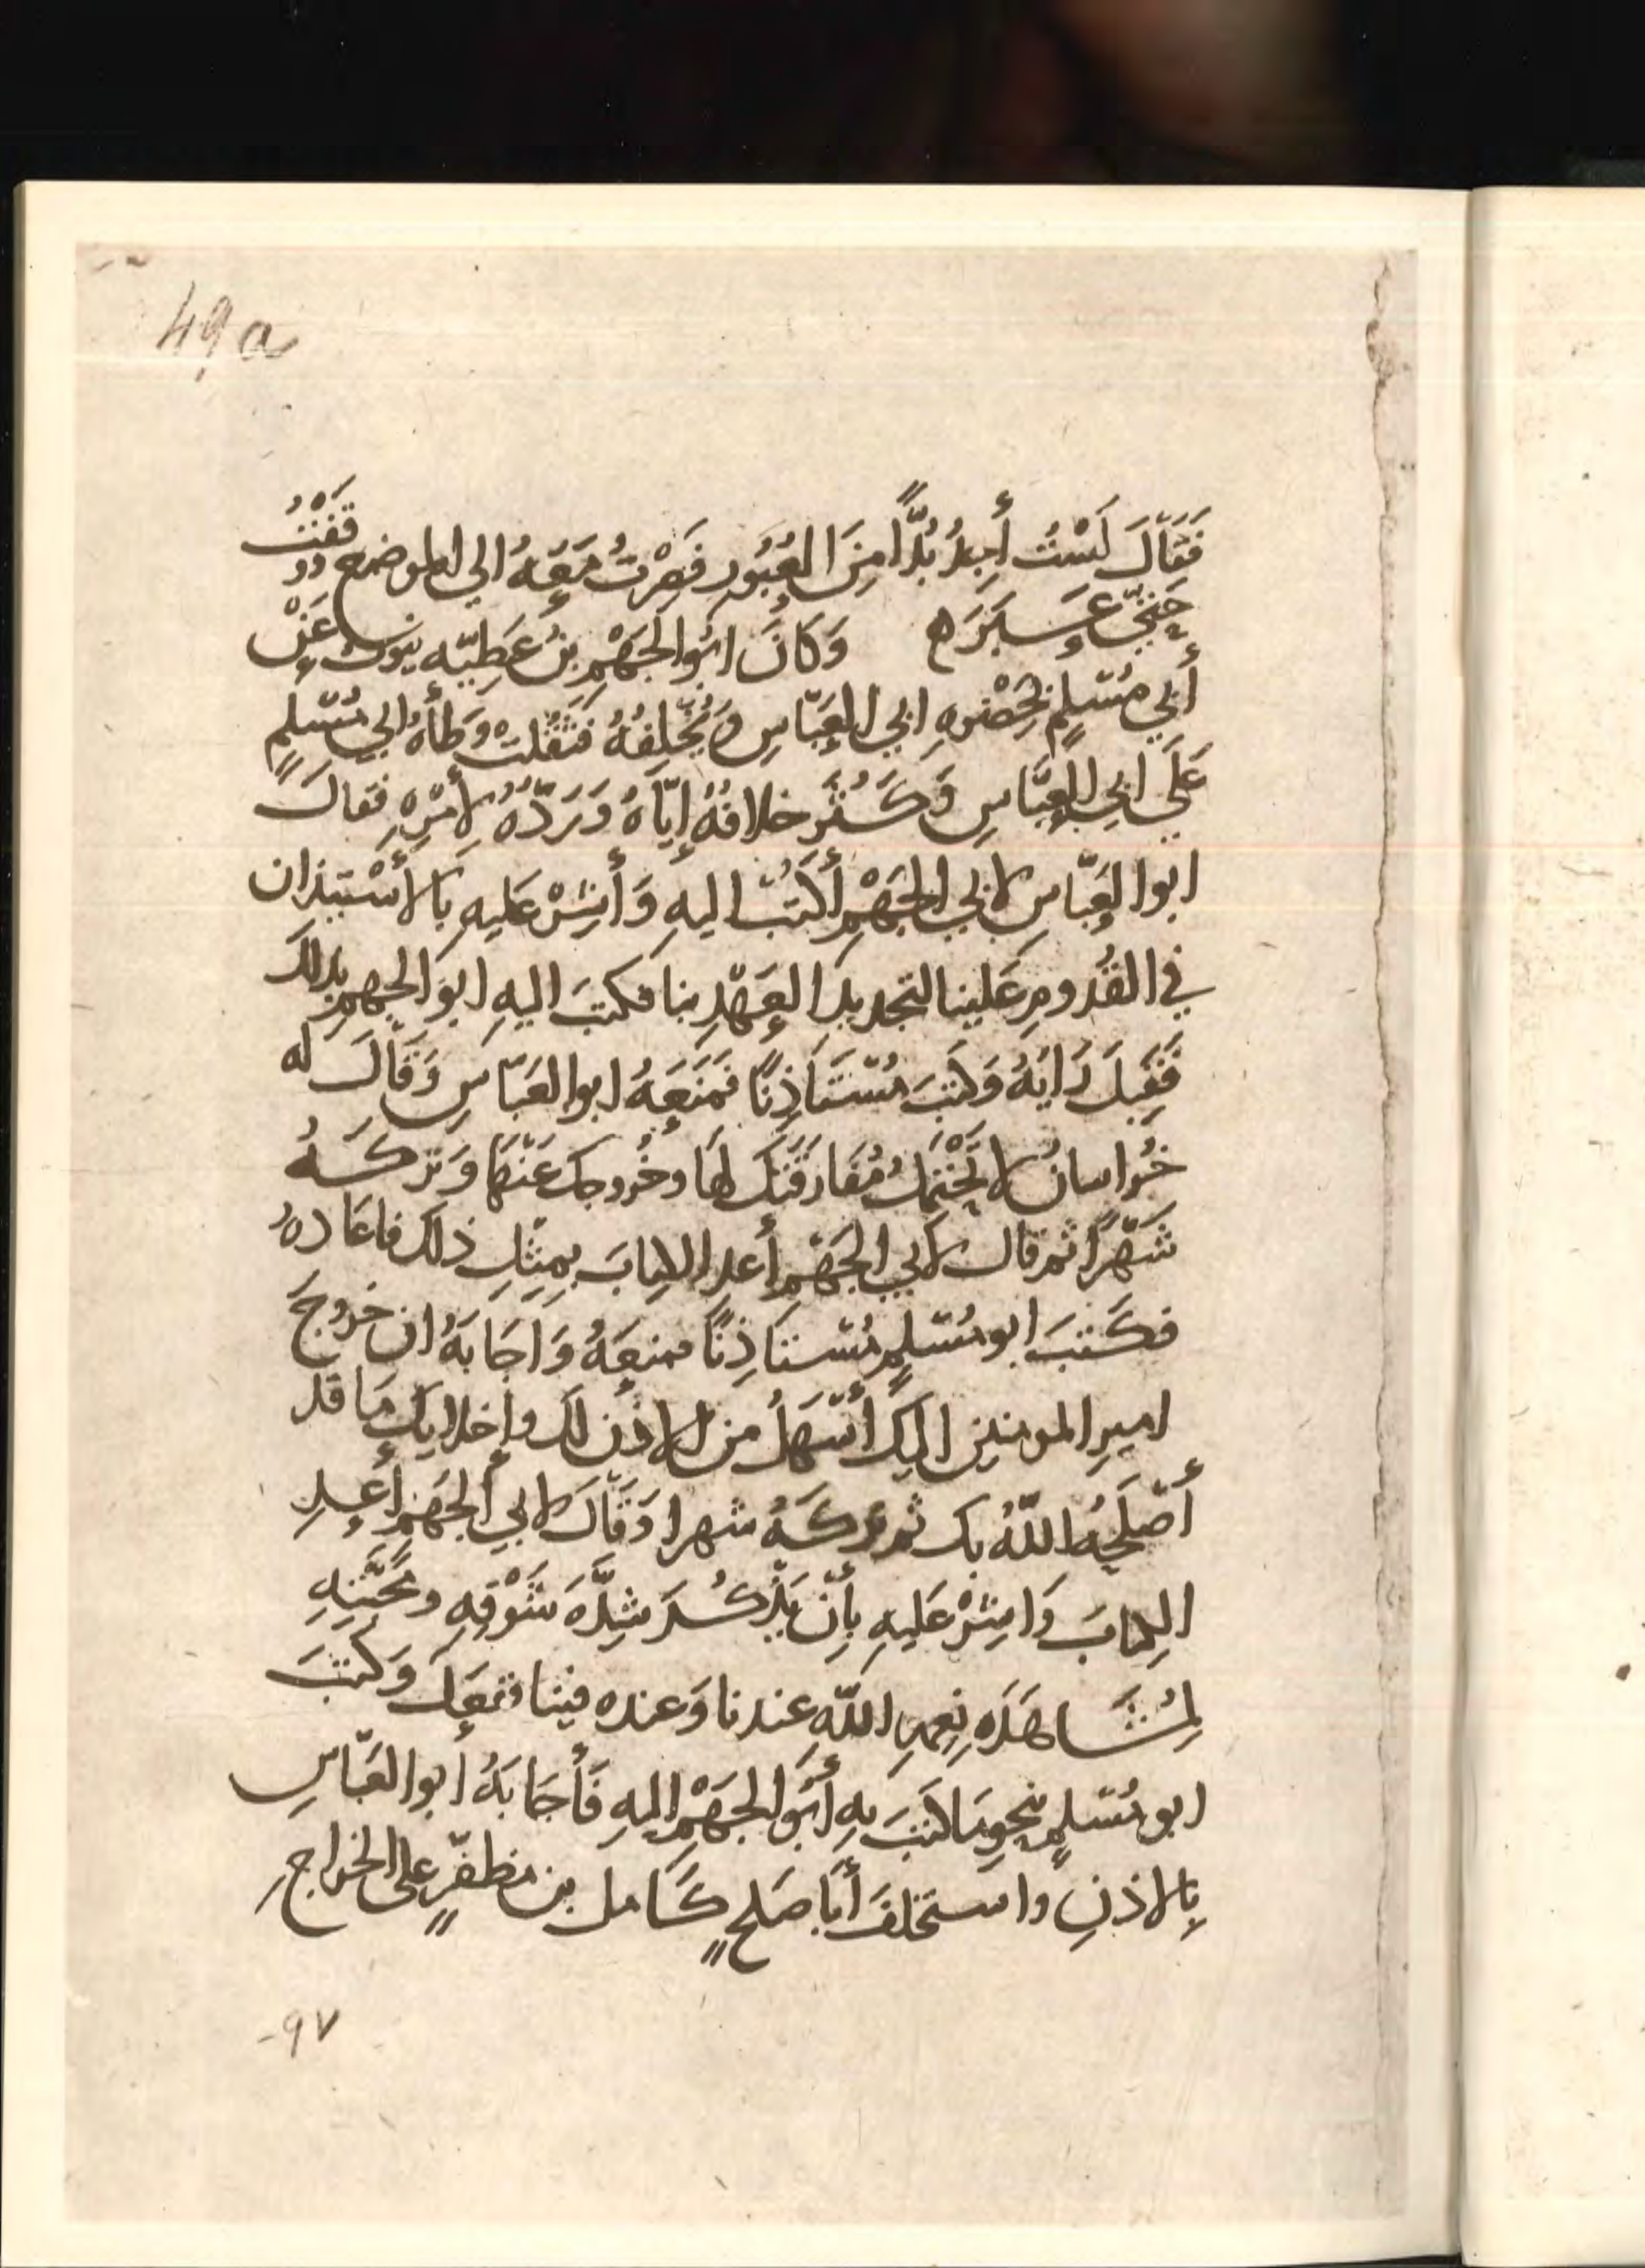 49a
فَقَالَ لَسْتُ أجِدُ بُدًّا مِنَ العُبُورِ فَصِرْتُ مَعَهُ الي الموضع ووَقَفْتُ
حَتّي عَبَرَ وَكَانَ ابُوا الجَهْمِ بنُ عَطِيّه عَيْن
أبِي مُسْلِمٍ بِحَضْرهِ ابي العَبّاسِ وَ فَثَقُلت وَطأهُ ابي مُسْلِمٍ
عَلَي ابي العبَّاسِ وَكَثُرَ خلافُهُ إيّاهُ وَرَدّهُ لأمْرِهِ فقالَ
ابوا العَبّاسِ لابي الجَهْمِ أكتُبْ اليهِ وَأشِرْ عَليهِ بَالاسْتيذان
في القُدومِ عَلينا لتجديد العَهْدِ بنا فكتبَ اليهِ ابوَ الجهمِ بذلكَ
فَقَبِلَ رَايَهُ وَكتبَ مُسْتَاذِنًا فَمَنَعَهُ ابوا العَبّاسِ وَقَالَ له
خُراسانُ لا تَحْتَمِلُ مُفَارَقَتَك لهَا وخُروجك عَنْهَا وَتركَهُ
شَهْرًا ثم قال لابي الجَهْمِ أعدِ الكِتابَ بِمِثلِ ذلك فاعَادهُ
فكَتبَ ابو مُسْلمٍ مُسْتاذِنًا فمنعَهُ وَاجَابَهُ ان خروجَ
اميرِ المومنين اليكَ أسْهَلُ من الاذن لك وإخلايك مَا قد
أصْلَحَهُ اللّهُ بك ثم تركَهُ شهرا وَقَالَ لابي الجَهْمِ أعِدِ
الكِتابَ وَاشِرْ عَليهِ بِأنْ يَذْكُرَ شِدَّهَ شَوْقِهِ ومَحَبَّتِهِ
لِمُشَاهَدَهِ نِعَمِ اللّهِ عندنا وَعنده فينا ففعَلَ وَكتبَ
ابو مُسْلمٍ بنحوِ مَا كتبَ بهِ أبُوَ الجَهْمِ اليهِ فَأجَابَهُ أبوا العَبّاسِ
بِالاذنِ واستخلفَ أبَا صَلحٍ كَامل بن مظفّرٍ علي الخراجِ
-٩٧